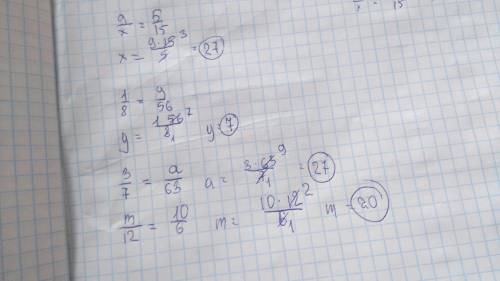 9/x = 5/15
x = 9·15³/5 = 27
1/8 = y/56
y = 1·56⁷/8₁ y=7
3/7 = a/63 a = 3·63⁹/7₁ = 27
m/12 = 10/6 m = 10·12²/6₁ m=20
15